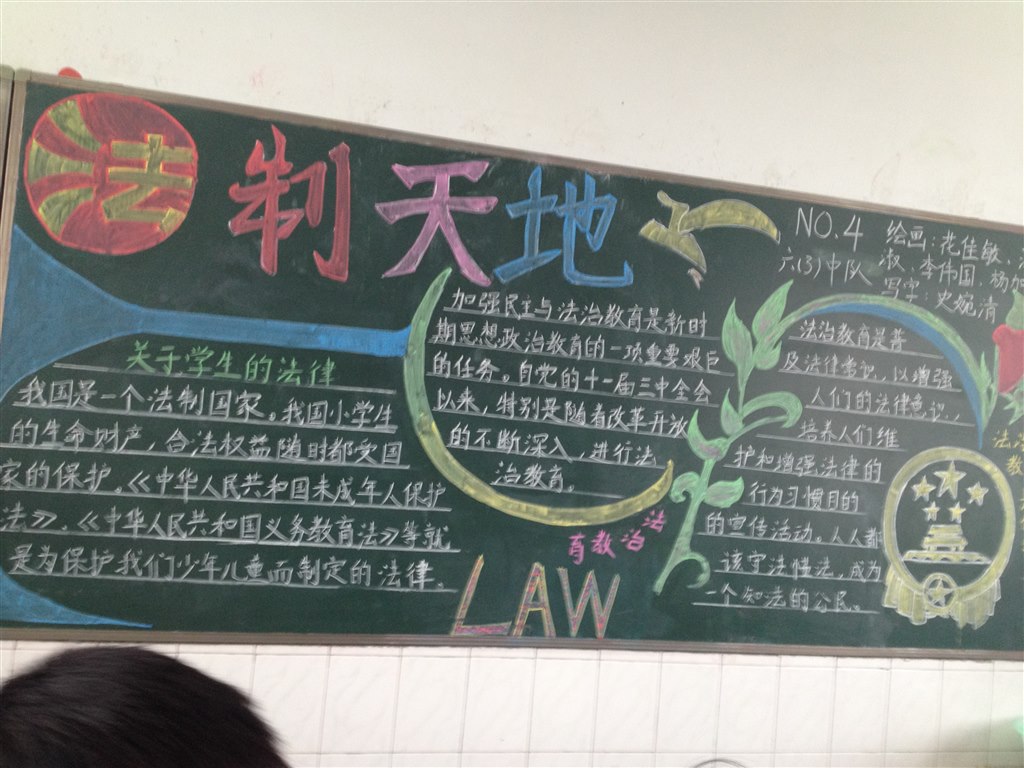 法制天地
NO.4
六(3)中队
绘画：
淑、李伟国、杨
写字：史婉清
关于学生的法律
我国是一个法制国家。我国小学生
的生命财产，合法权益随时都受国
家的保护。《中华人民共和国未成年人保护
法》，《中华人民共和国义务教育法》等就
是为保护我们少年儿童而制定的法律。
加强民主与法治教育是新时
期思想政治教育的一项重要艰巨
的任务。自党的十一届三中全会
以来，特别是随着改革开放
的不断深入，进行法
治教育。
法治教育
LAW
法治教育是普
及法律常识，以增强
人们的法律意识，
培养人们维
护和增强法律的
行为习惯目的
的宣传活动。人人都
该守法懂法，成为
一个知法的公民。